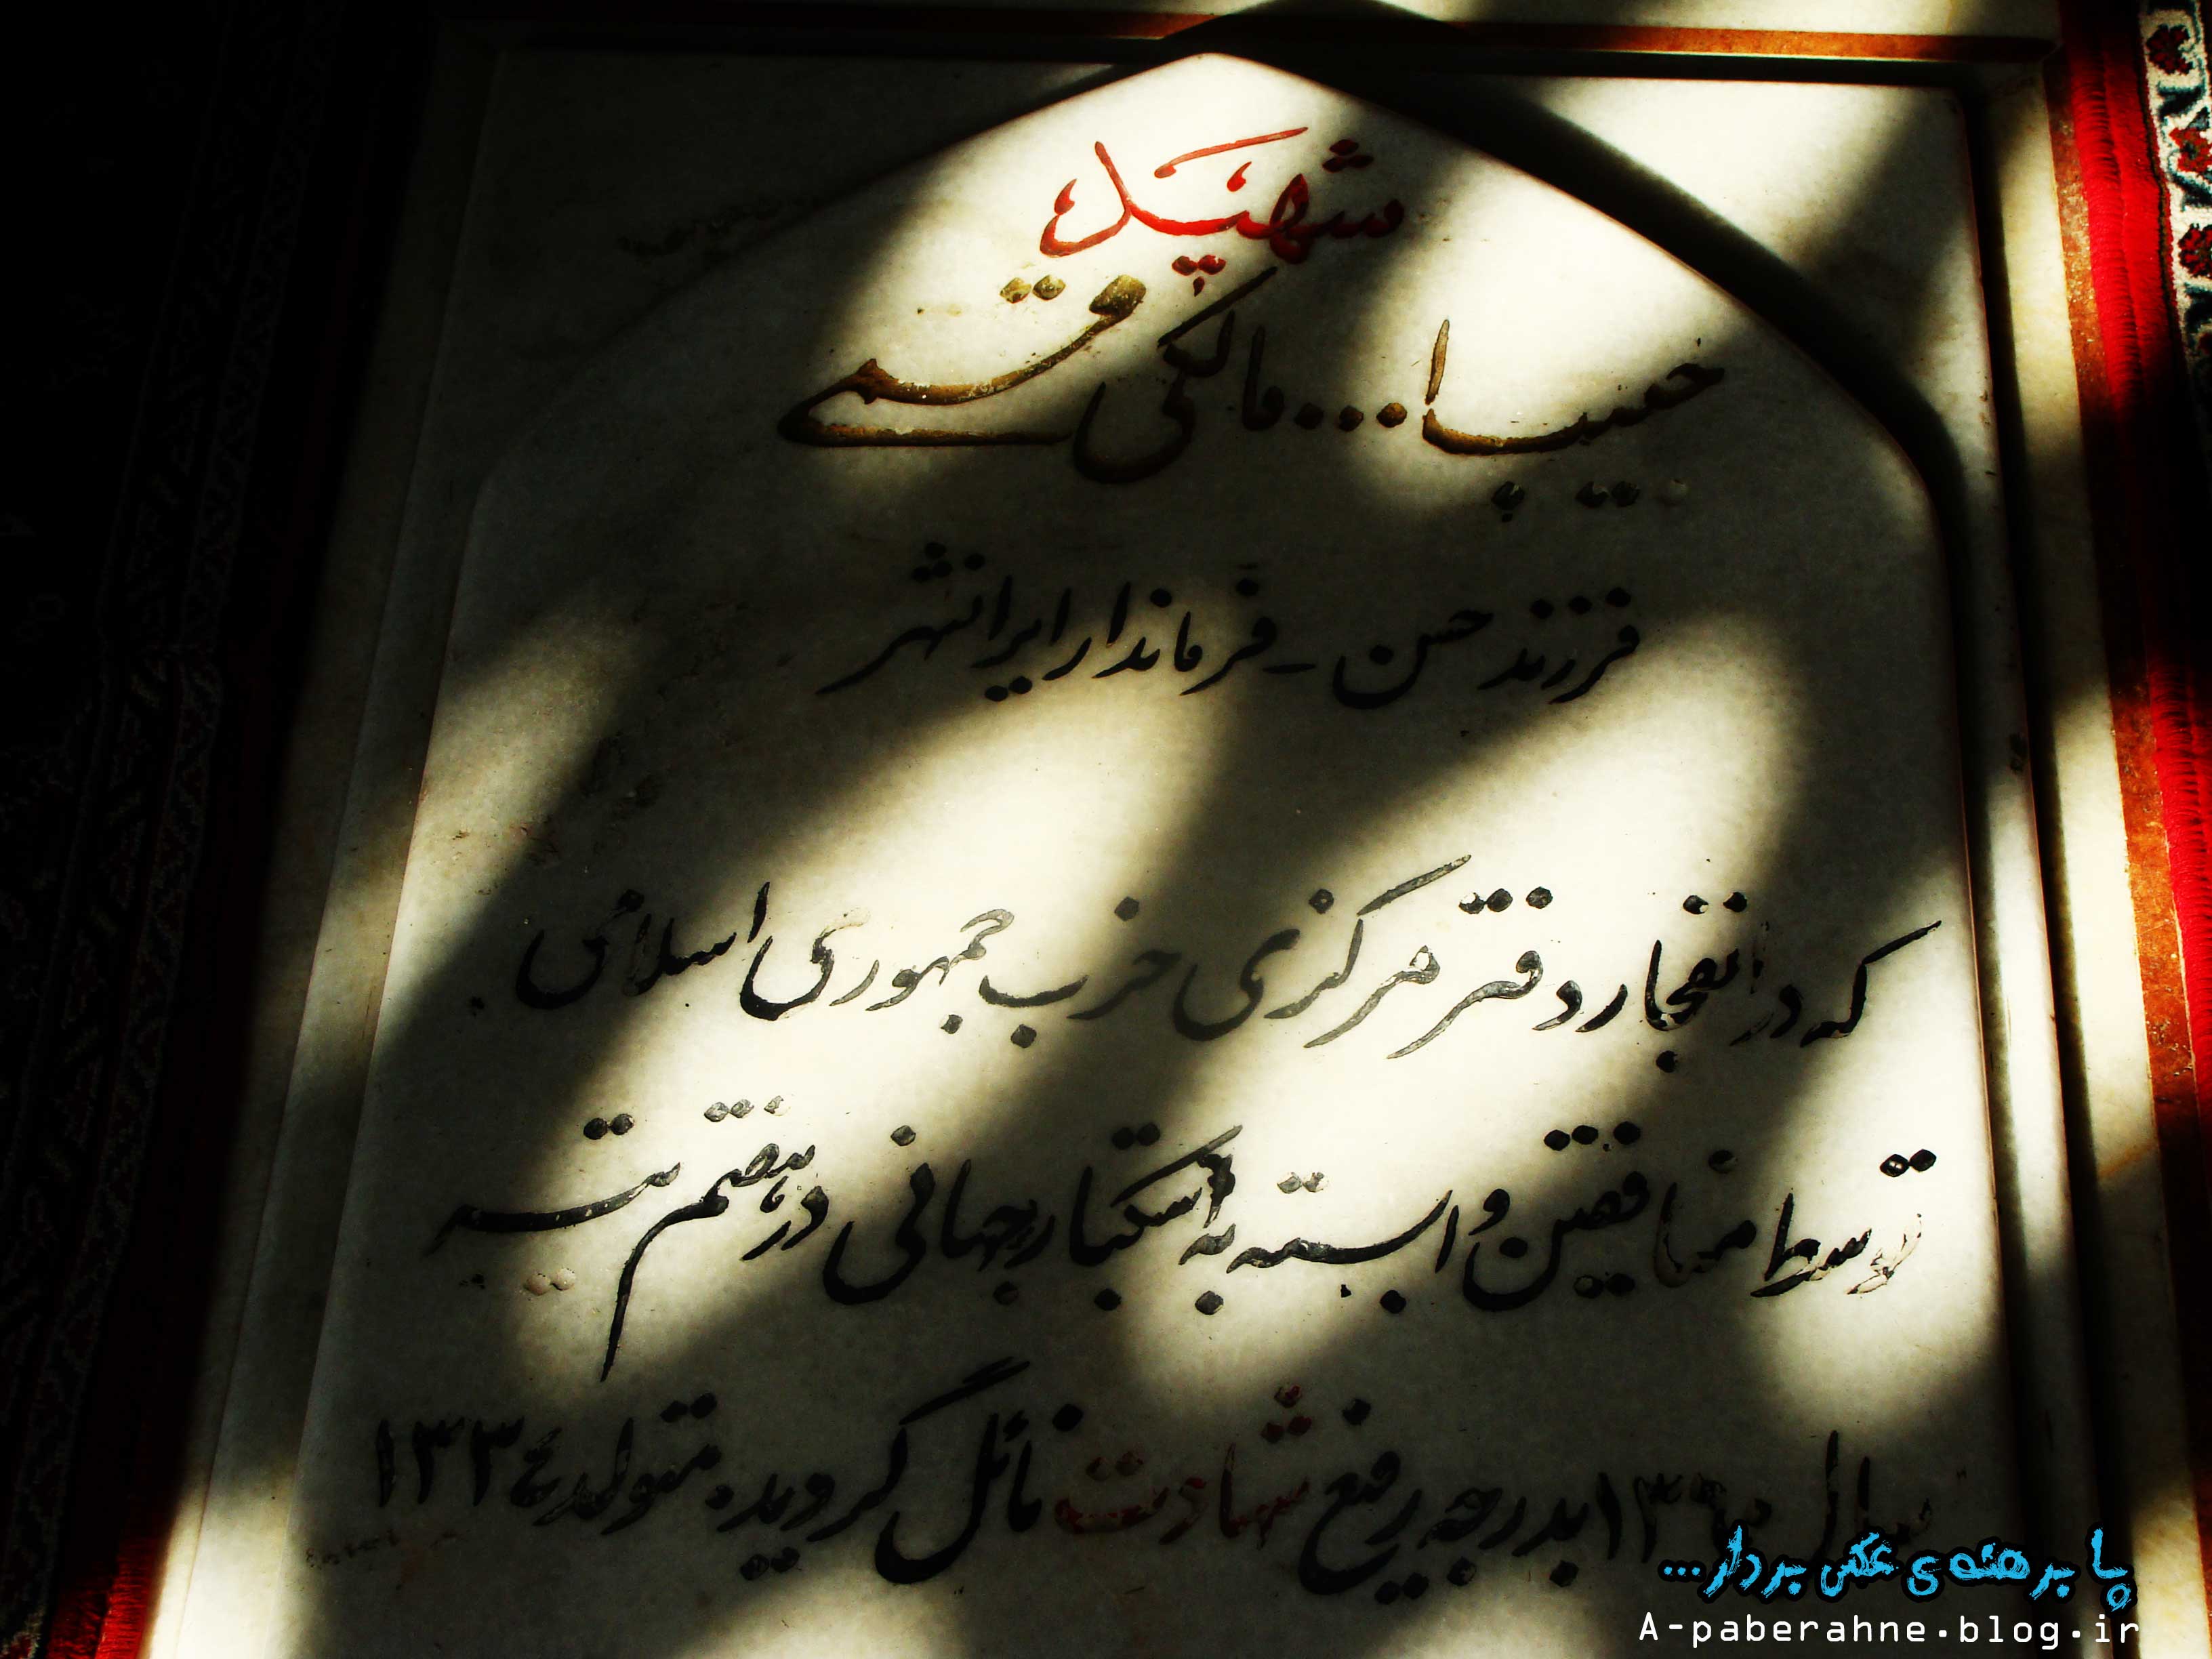 شهید
حبیب ا... مالکی قمی
فرزند حسن - فرماندار ایرانشهر
که در انفجار دفتر مرکزی حزب جمهوری اسلامی
توسط منافقین وابسته به استکبار جهانی در هفتم تیر
سال ۱۳۶۰ بدرجه رفیع شهادت نائل گردید. متولد ۱۳۳۴
پا برهنه‌ی عکس بردار...
A-paberahne.blog.ir